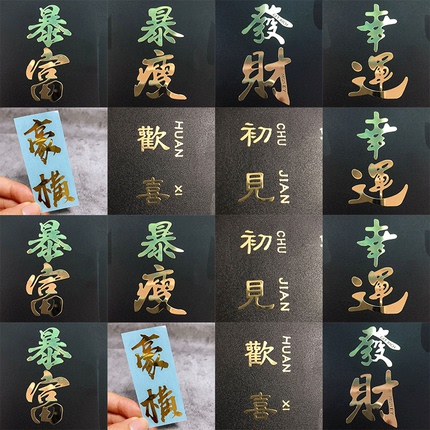 暴富
暴瘦
發財
幸運
豪横
歡喜
HUAN XI
初見
CHU JIAN
幸運
暴富
暴瘦
初見
CHU JIAN
幸運
暴富
豪横
歡喜
HUAN XI
發財